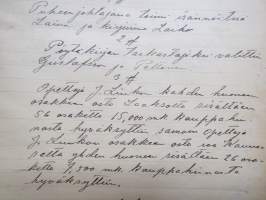 Puheenjohtajana toimi isännöitsijä
Laine ja kirjurina Larko
2 §
Pöytäkirjan tarkastajiksi valittiin
Gustafsson ja Pelkonen
3 §
Opettaja J. Linkon kahden huoneen
osakkeen osto Saaksolta sisältäen
56 osaketta 15,000 mk. Kauppahin-
nasta hyväksyttiin samoin Opettaja
J. Linkon osakkeen osto
yhden huoneen sisältäen 26 osa-
ketta 9,500 mk. Kauppahinnasta
hyväksyttiin.